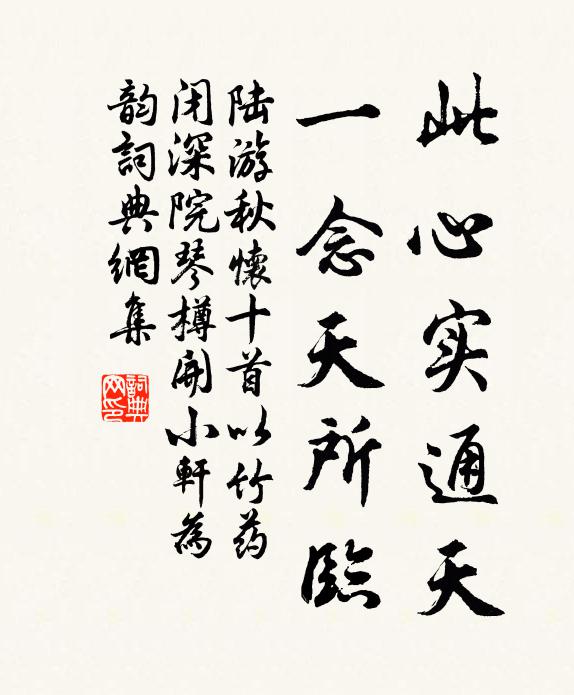 此心实通天
一念天所臨
陆游秋懷十首以竹药
闭深院琴樽開小軒為
韵詞典網集
詞典网印